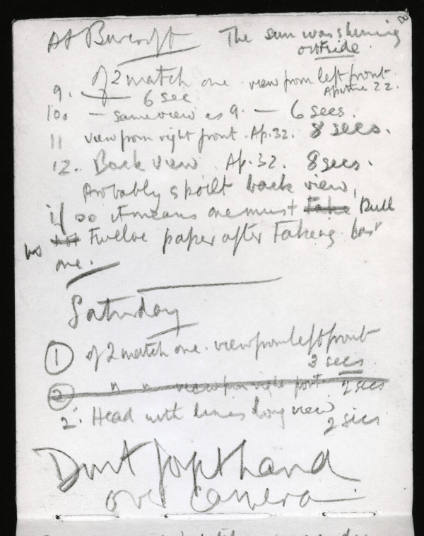 At Burcroft The sun was shining
outside.
9. of 2 match one view from left front.
6 sec Aperture 22.
10. — same view as 9. — 6 secs.
11 view from right front. Ap. 32. 8 secs.
12. Back view Ap. 32. 8 secs.
Probably spoilt back view,
if so it means one must take pull
no twelve paper after taking last
one.
Saturday
1 of 2 match one. view from left front
3 secs
2 " " view from right front 2 secs
2. Head with lines long view
2 secs
Dont forget hand
over camera